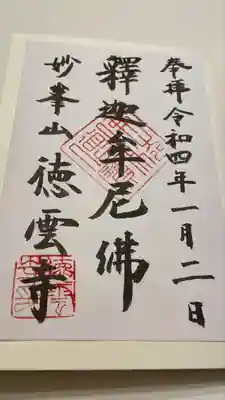 奉拝令和四年一月二日
釋迦牟尼佛
妙峯山徳雲寺